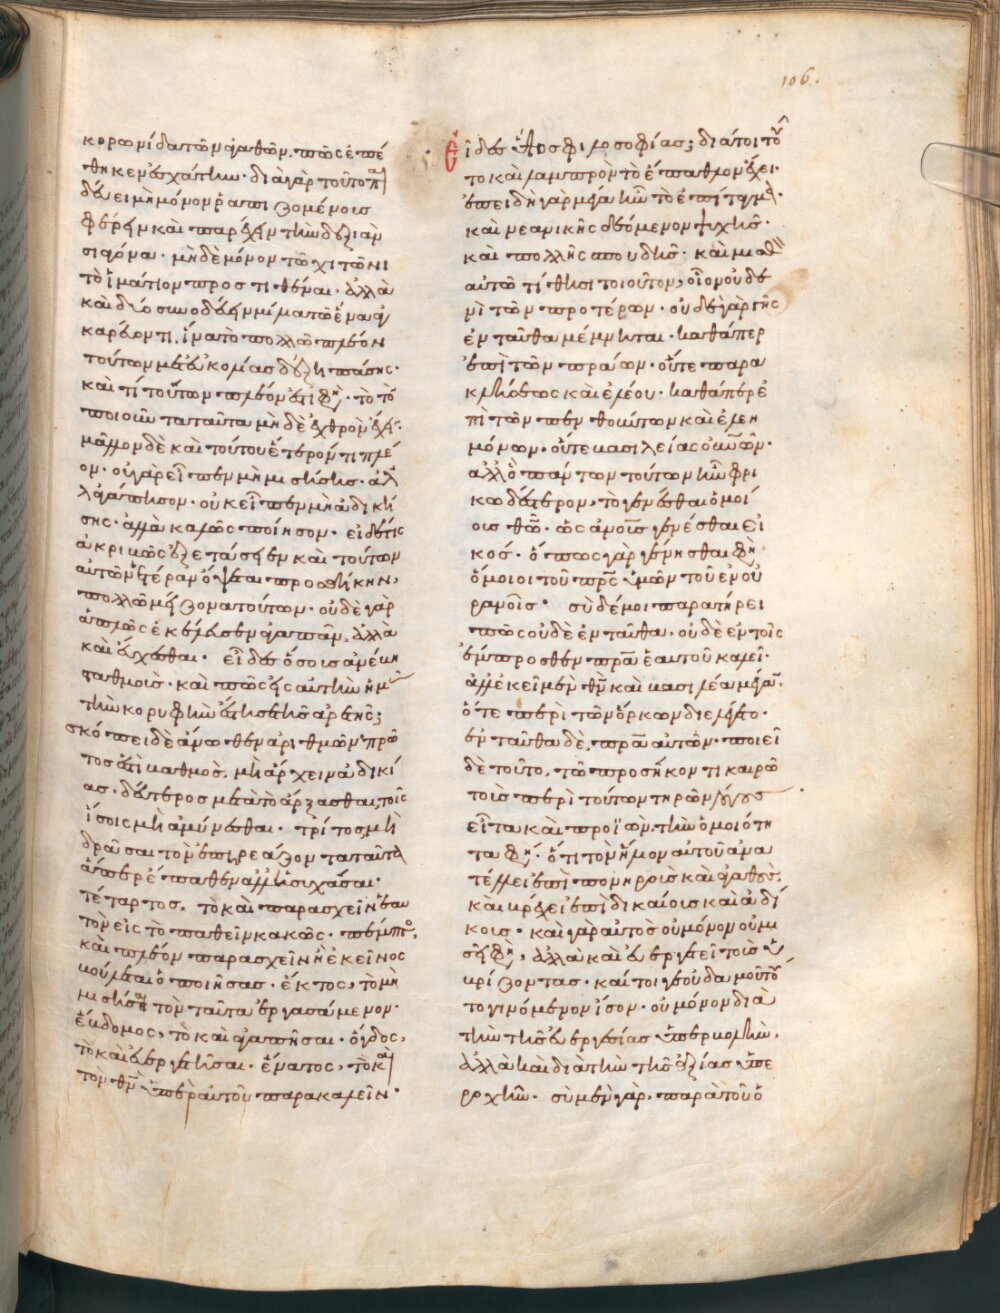 106.
κορωνίδα τῶν ἀγαθῶν, πῶς ἐπέ
θηκεν ἐσχάτην· διὰ γὰρ τοῦτο π(αι)
δεύει μὴ μόνον ῥαπιζομένοις
φέρειν καὶ παρέχειν τὴν δεξιὰν
σιαγόνα· μὴ δὲ μόνον τῶ χιτῶνι
τὸ ἱμάτιον προστιθέναι· ἀλλὰ
καὶ δύο συνοδεύειν μίλια τῶ ἕνα ἀγ
γαρεύοντι, ἵνα τὸ πολλῶ πλέον
τούτων μετ' εὐκολίας δέξη πάσης·
καὶ τί τούτων πλέον ἐστὶ φη(σί)· τὸ τὸν
ποιοῦντα ταῦτα μὴ δὲ ἐχθρὸν ἔχειν·
μᾶλλον δὲ καὶ τούτου ἕτερόν τι πλέ
ον· οὐ γὰρ εἶπεν μὴ μισήσης· ἀλ
λ' ἀγάπησον· οὐκ εἶπεν μὴ ἀδική
σης· ἀλλὰ καλῶς ποίησον· εἰ δέ τις
ἀκριβῶς ἐξετάσειεν καὶ τούτων
αὐτῶν ἑτέραν ὄψεται προσθήκην,
πολλῶ μείζονα τούτων· οὐδὲ γὰρ
ἁπλῶς ἐκέλευσεν ἀγαπᾶν, ἀλλὰ
καὶ εὔχεσθαι· εἶδες ὅσοις ἀνέβη
βαθμοῖς· καὶ πῶς εἰς αὐτὴν ἡμ(ᾶς)
τὴν κορυφὴν ἔστησε τῆς ἀρετῆς;
σκόπει δὲ ἄνωθεν ἀριθμῶν· πρῶ
τος ἐστὶ βαθμὸς, μὴ ἄρχειν ἀδικί
ας· δεύτερος μετὰ τὸ ἄρξασθαι, τοῖς
ἴσοις μὴ ἀμύνεσθαι· τρίτος, μὴ
δρᾶσαι τὸν ἐπηρεάζοντα ταῦτα
ἅπερ ἔπαθεν ἀλλ' ἡσυχάσαι·
τέταρτος, τὸ καὶ παρασχεῖν ἑαυ
τὸν εἰς τὸ παθεῖν κακῶς· πέμπτος,
καὶ πλέον παρασχεῖν ἢ ἐκεῖνος
βούλεται ὁ ποιήσας· ἕκτος, τὸ μὴ
μισῆσαι τὸν ταῦτα ἐργασάμενον·
ἕβδομος, τὸ καὶ ἀγαπῆσαι· ὄγδος,
τὸ καὶ εὐεργετῆσαι· ἔνατος, τὸ κ(αὶ)
τὸν θν ὑπὲρ αὐτοῦ παρακαλεῖν·
Εἶδες ὕψος φιλοσοφίας; διά τοι τοῦ
το καὶ λαμπρὸν τὸ ἔπαθλον ἔχει·
ἐπειδὴ γὰρ μέγα ἦν τὸ ἐπίταγμα·
καὶ νεανικῆς δεόμενον ψυχῆς·
καὶ πολλῆς σπουδῆς· καὶ μισθ(ὸν)
αὐτῶ τίθησι τοιοῦτον, οἷον οὐδε
νὶ τῶν προτέρων· οὐδὲ γὰρ γῆς
ἐνταῦθα μέμνηται· καθάπερ
ἐπὶ τῶν πραέων· οὔτε παρα
κλήσεως καὶ ἐλέου· καθάπερ ἐ
πὶ τῶν πενθούντων καὶ ἐλεη
μόνων· οὔτε βασιλείας οὐνῶν·
ἀλλ' ὃ πάντων τούτων ἦν φρι
κωδέστερον· τὸ γενέσθαι ὁμοί
οις θῶ· ὡς ἀνοις γενέσθαι εἰ
κός· ὅπως γὰρ γένησθαι φη(σὶν)
ὅμοιοι τοῦ πρς ὑμῶν τοῦ ἐν οὐ
ρανοῖς· σὺ δέ μοι παρατήρει
πῶς οὐδὲ ἐνταῦθα· οὐδὲ ἐν τοῖς
ἔμπροσθεν πρα ἑαυτοῦ καλεῖ·
ἀλλ' ἐκεῖ μὲν θν καὶ βασιλέα μέγαν·
ὅτε περὶ τῶν ὅρκων διελέγετο·
ἐνταῦθα δὲ, πρα αὐτῶν· ποιεῖ
δὲ τοῦτο, τῶ προσήκοντι καιρῶ
τοὺς περὶ τούτων τηρῶν λόγους·
εἶτα καὶ προϊὼν, τὴν ὁμοιότη
τα φη(σί)· ὅτι τὸν ἥλιον αὐτοῦ ἀνα
τέλλει ἐπὶ πονηροὺς καὶ ἀγαθούς·
καὶ βρέχει ἐπὶ δικαίους καὶ ἀδί
κους· καὶ γὰρ αὐτὸς οὐ μόνον οὐ μι
σεῖ φη(σὶν), ἀλλὰ καὶ εὐεργετεῖ τοὺς ὑ
βρίζοντας· καί τοι γε οὐδαμοῦ τὸ
τὸ γινόμενον ἴσον· οὐ μόνον διὰ
τὴν τῆς εὐεργεσίας ὑπερβολὴν,
ἀλλὰ καὶ διὰ τὴν τῆς ἀξίας ὑπε
ροχήν· σὺ μὲν γὰρ, παρὰ τοῦ ὁ